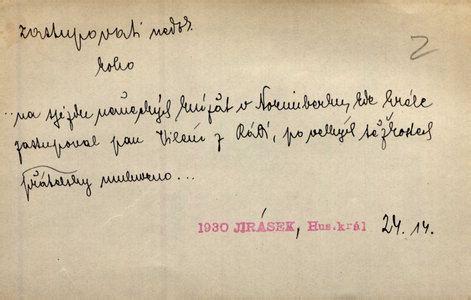 zastupovati nedok.
2
koho
..na sjezdu německých knížat v Normberku, kde krále
zastupoval pan Vilém z Rábí, po velkých těžkostech
přátelsky umluveno...
1930 JIRÁSEK, Hus. král 24. 14.